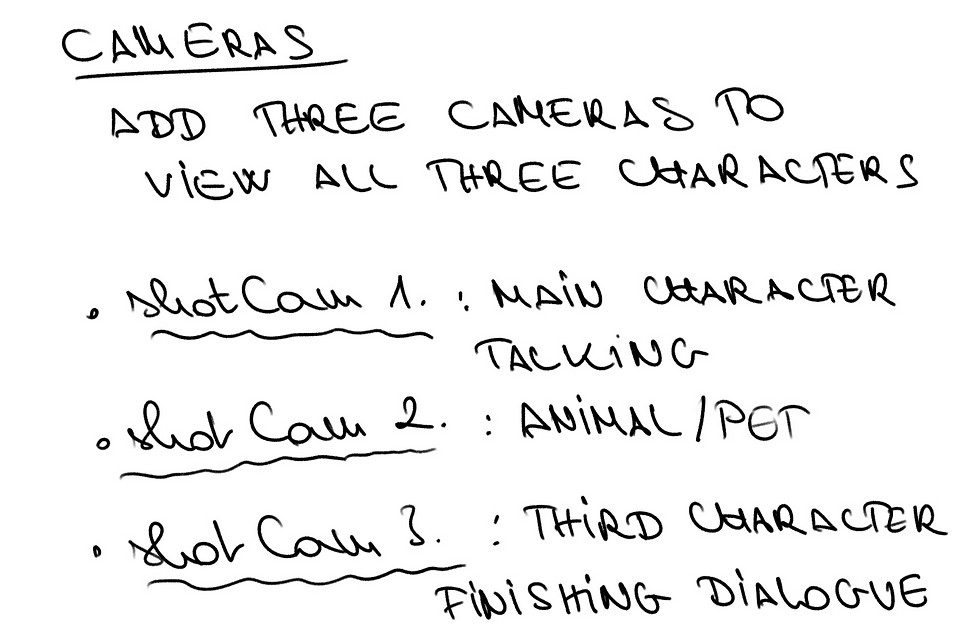 CAMERAS
ADD THREE CAMERAS TO
VIEW ALL THREE CHARACTERS
• shotCam 1. : MAIN CHARACTER
TACKING
• shot Cam 2. : ANIMAL/PET
• shot Cam 3. : THIRD CHARACTER
FINISHING DIALOGUE